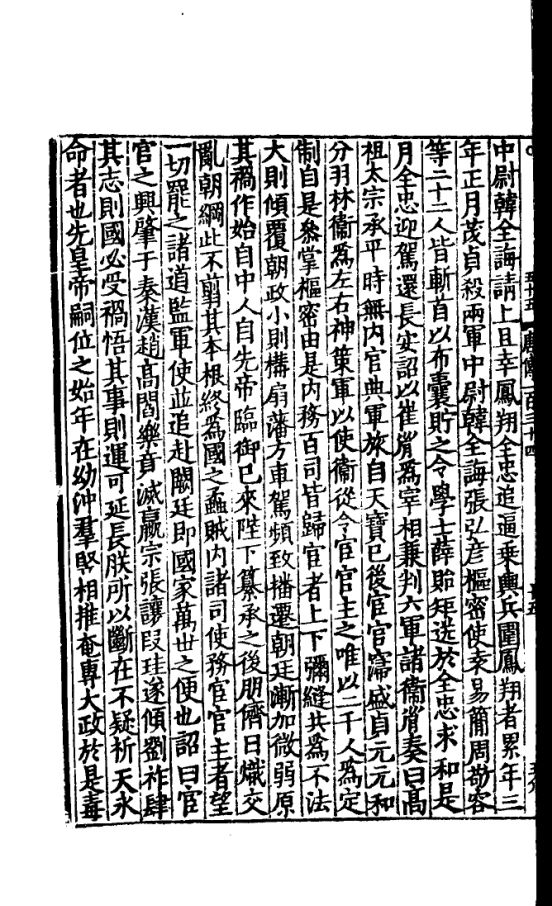 中尉韓全誨請上且幸鳳翔全忠追逼乘輿兵圍鳳翔者累年三
年正月茂貞殺兩軍中尉韓全誨張弘彥樞密使袁易簡周敬容
等二十二人皆斬首以布囊貯之令學士薛貽矩送於全忠求和是
月全忠迎駕還長安詔以崔胤為宰相兼判六軍諸衛胤奏曰高
祖太宗承平時無內官典軍旅自天寶已後宦官寖盛貞元元和
分羽林衛為左右神策軍以使衛從令宦官主之唯以二千人為定
制自是參掌樞密由是內務百司皆歸宦者上下彌縫共為不法
大則傾覆朝政小則構扇藩方車駕頻致播遷朝廷漸加微弱原
其禍作始自中人自先帝臨御已來陛下纂承之後朋儕日熾交
亂朝綱此不翦其本根終為國之蟊賊內諸司使務宦官主者望
一切罷之諸道監軍使並追赴闕廷即國家萬世之便也詔曰宦
官之興肇于秦漢趙高閻樂竟滅嬴宗張讓段珪遂傾劉祚肆
其志則國必受禍悟其事則運可延長朕所以斷在不疑祈天永
命者也先皇帝嗣位之始年在幼沖羣豎相推奄專大政於是毒